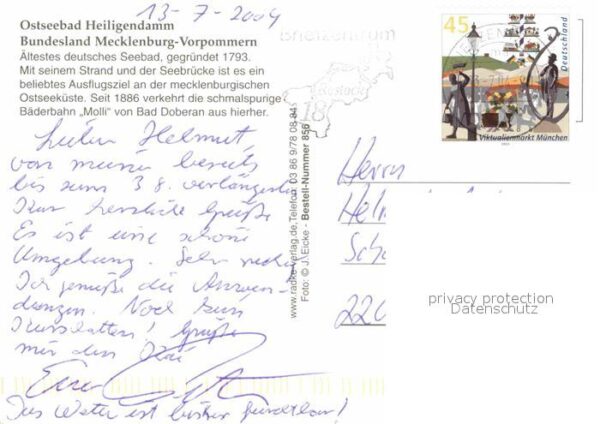 13-7-2004
Ostseebad Heiligendamm
Bundesland Mecklenburg-Vorpommern
Ältestes deutsches Seebad, gegründet 1793.
Mit seinem Strand und der Seebrücke ist es ein
beliebtes Ausflugsziel an der mecklenburgischen
Ostseeküste. Seit 1886 verkehrt die schmalspurige
Bäderbahn „Molli" von Bad Doberan aus hierher.
Lieber Helmut,
von meiner bereits
bis zum 3 8. verlängerten
Kur herzliche Grüße
Es ist eine schöne
Umgebung. Sehr
Ich genieße die Anwen-
dungen. Noch
Grüße
mir
Das Wetter ist bisher furchtbar!
www.radke-verlag.de, Telefon 03 86 9/78 08 84
Foto: © J. Eicke - Bestell-Nummer 856
Briefzentrum
Rostock
18
45
Deutschland
Viktualienmarkt München
Herrn
Hel
Sch
22
privacy protection
Datenschutz